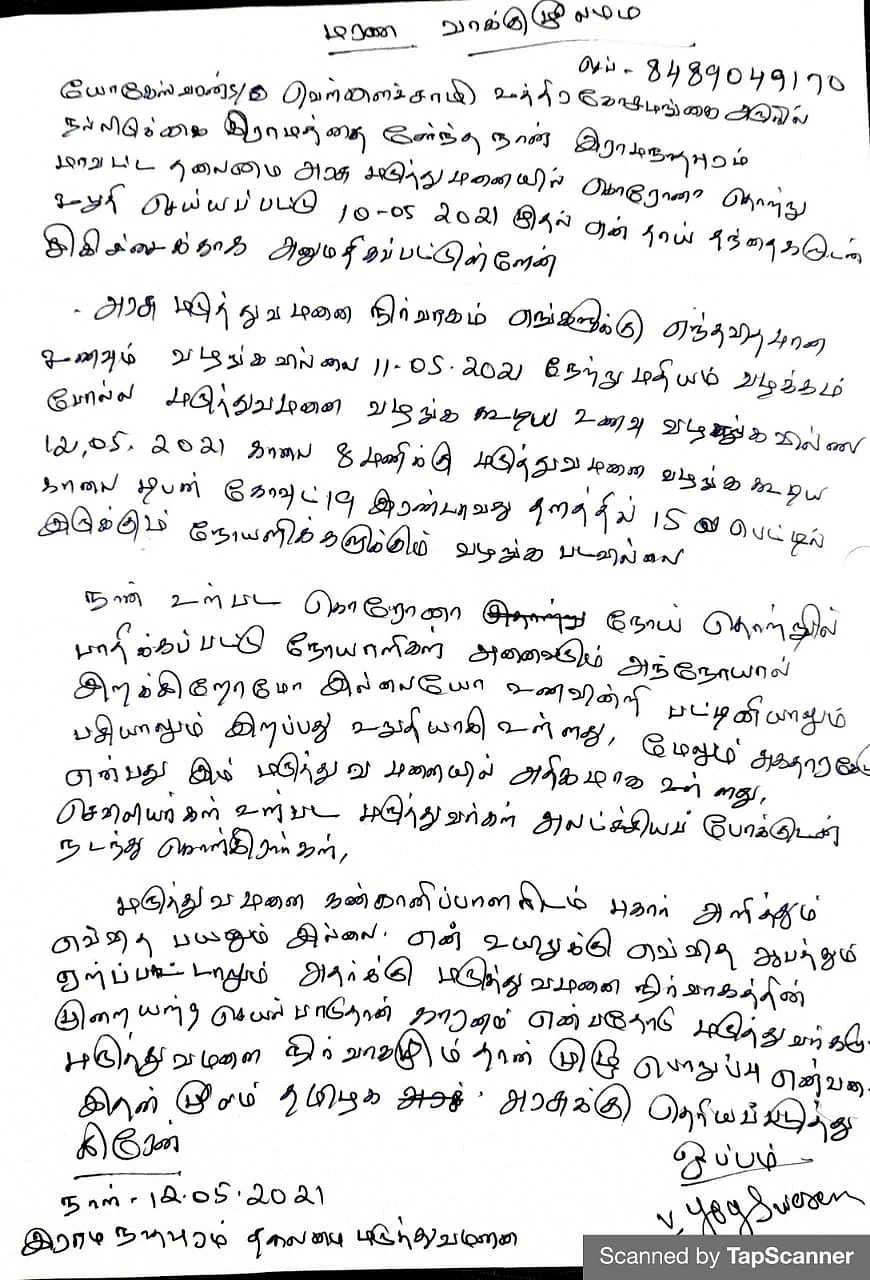 மரண வாக்குமூலமம்
செல் - 8489049170
யோகேஸ்வரன் S/o வெள்ளைச்சாமி உத்திரகோசமங்கை அருகில்
நல்லிருக்கை இராமத்தை சேர்ந்த நான் இராமநாதபுரம்
மாவட்ட தலைமை அரசு மருத்துமனையில் கொரோனா தொற்று
உறுதி செய்யபட்டு 10-05 2021 இதல் என் தாய் தந்தைகளுடன்
சிகிச்சைக்காக அனுமதிகப்பட்டுள்ளேன்
. அரசு மருத்துவமனை நிர்வாகம் எங்களுக்கு எந்தவிதமான
உணவும் வழங்கவில்லை 11-05.2021 நேற்று மதியம் வழக்கம்
போல்ல மருத்துவமனை வழங்க கூடிய உணவு வழங்கவில்லை
12,05.2021 காலை 8 மணிக்கு மருத்துவமனை வழங்க கூடிய
காலை டிபன் கோவிட்19 இரண்டாவது தளத்தில் 15 பெட்டில்
இருக்கும் நோயளிக்களுக்கும் வழங்க படவில்லை
நான் உள்பட கொரோனா நோய் தொற்றில்
பாதிக்கப்பட்டு நோயாளிகள் அனைவரும் அந்நோயால்
இறக்கிறோமோ இல்லையோ உணவின்றி பட்டினியாலும்
பசியாலும் இறப்பது உறுதியாகி உள்ளது, மேலும் சுகாதாரகேடு
என்பது இம் மருத்துவமனையில் அதிகமாக உள்ளது,
செவிலியர்கள் உள்பட மருத்துவர்கள் அலட்ச்சியப் போக்குடன்
நடந்து கொள்கிறார்கள்,
மருத்துவமனை கண்கானிப்பாளரிடம் புகார் அளித்தும்
எவ்வித பயனும் இல்லை. என் உயிறுக்கு எவ்வித ஆபத்தும்
ஏற்ப்பட்டாலும் அதற்க்கு மருத்துவமனை நிர்வாகத்தின்
முறையற்ற செயல்பாடுதான் காரனம் என்பதோடு மருத்துவர்களு
மருத்துவமனை நிர்வாகமும் தான் முழு பொறுப்பு என்பதை
இதன் மூலம் தமிழக அரசுக்கு தெரியபடுத்து
கிறேன்
ஒப்பம்
நாள் - 12.05.2021
V. Yogeswaran
இராமநாதபுரம் தலைமை மருத்துவமனை
Scanned by TapScanner